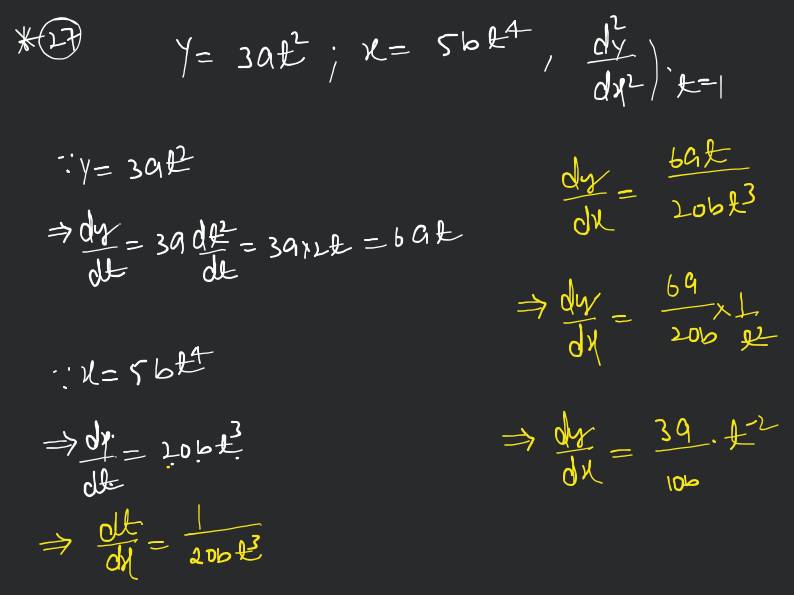 *27 y = 3at² ; x = 5bt⁴ , d²y/dx²) t=1
∵ y = 3at²
⇒ dy/dt = 3a dt²/dt = 3a×2t = 6at
∵ x = 5bt⁴
⇒ dx/dt = 20bt³
⇒ dt/dx = 1/20bt³
dy/dx = 6at/20bt³
⇒ dy/dx = 6a/20b × 1/t²
⇒ dy/dx = 3a/10b . t⁻²